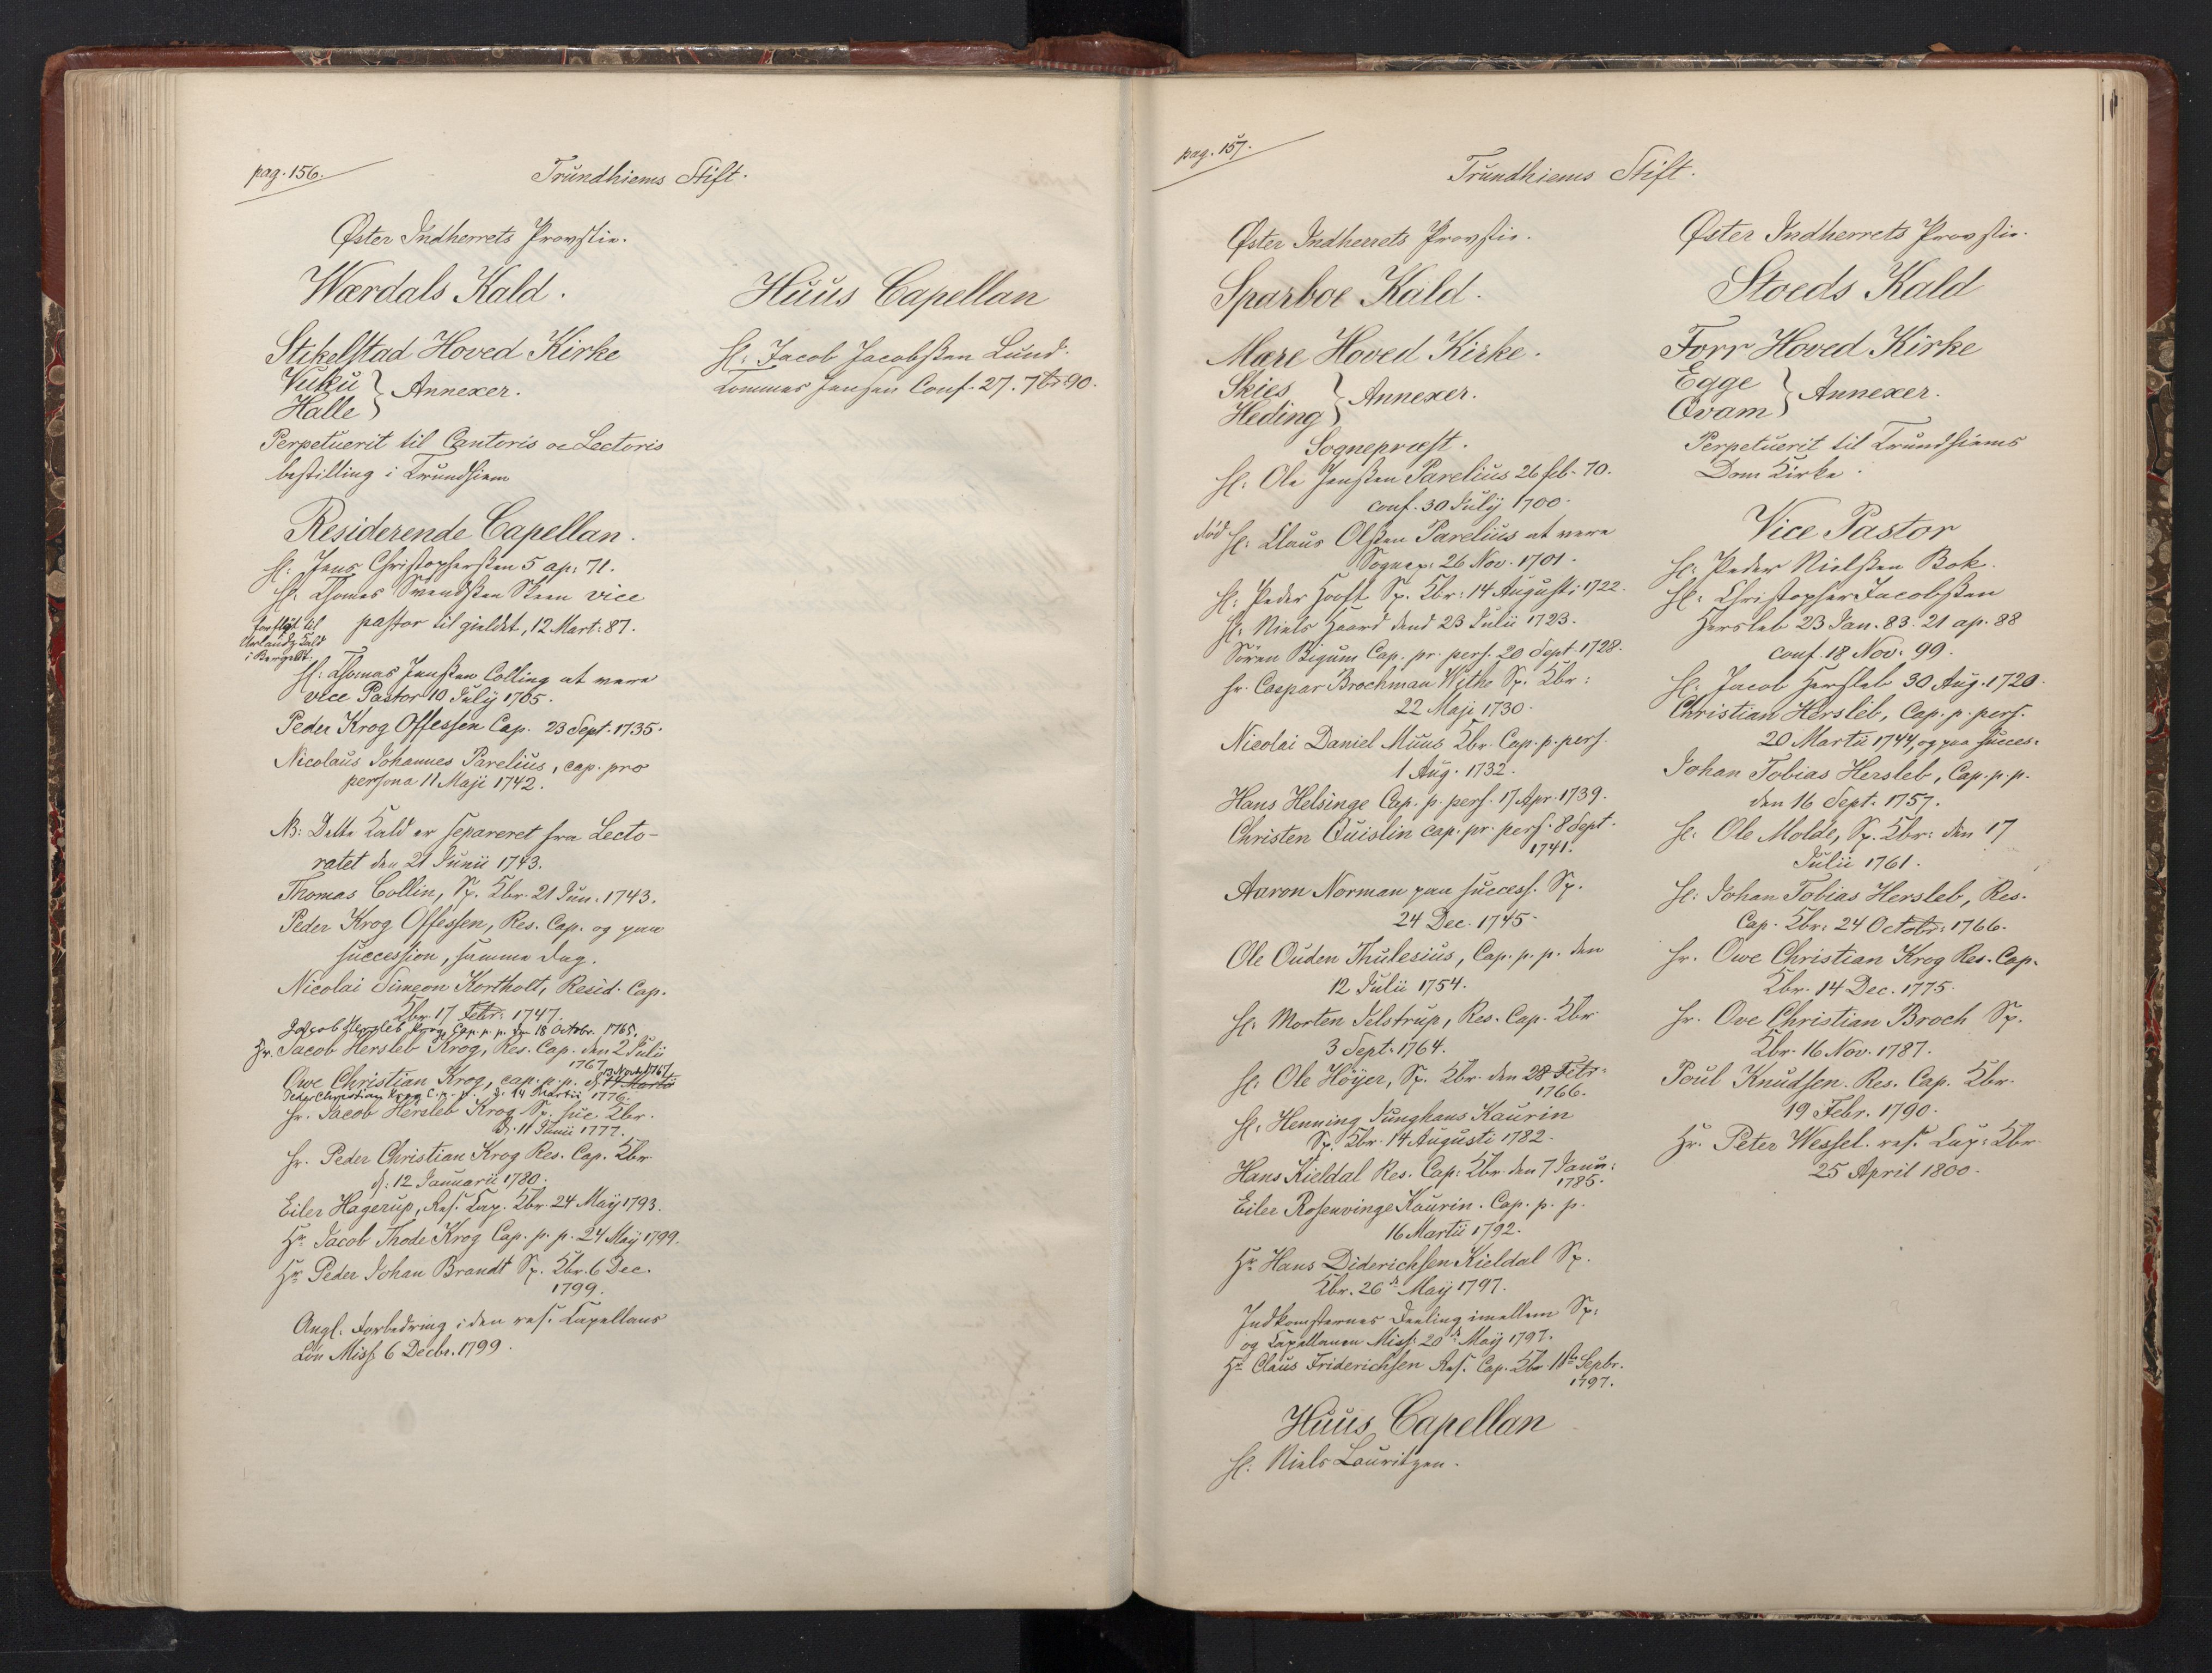 pag. 156.
Trundhiems Stift.
Øster Indherrets Provstie.
Wærdals Kald.
Stikelstad Hoved Kirke
Vuku
Halle } Annexer.
Perpetuerit til Cantoris oc Lectoris
bestilling i Trundhiem
Residerende Capellan.
Hr: Jens Christophersen 5 ap: 71.
Hr. Thomas Svendsen Steen vice
pastor til gieldet, 12 Mart: 87.
forflyt til
Aurlands Kald
i Bergen St.
Hr: Thomas Jensen Colling at være
vice Pastor 10 July 1705.
Peder Krog Offessen Cap. 23 Sept. 1735.
Nicolaus Johannes Parelius, cap. pro
persona 11 Maji 1742.
NB: Dette Kald er separeret fra Lecto-
ratet den 21 Junii 1743.
Thomas Collin, Sp. Kbr. 21 Jun. 1743.
Peder Krog Offessen, Res. Cap. og paa
succession, samme dag.
Nicolai Simeon Kortholt, Resid. Cap.
Kbr. 17 Febr: 1747.
Jacob Hersleb Krog, Cap. p. p. den 18 Octobr. 1765.
Hr. Jacob Hersleb Krog, Res. Cap. den 2 Julii
1767
Owe Christian Krog, cap. p. p. d. 13 Novb. 1767 14 Martii
Peder Christian Krog C. p. p. d. 14 Martii 1776.
Hr. Jacob Hersleb Krog Sp. suc. Kbr.
D. 11 Junii 1777.
Hr. Peder Christian Krog Res. Cap. Kbr.
d: 12 Januarii 1780.
Eiler Hagerup, Res. Cap. Kbr. 24 May 1793.
Hr. Jacob Thode Krog Cap. p. p. 24 May 1799.
Hr. Peder Johan Brandt Sp. Kbr. 6 Dec.
1799.
Angl. Forbedring i den res. Capellans
Løn Miss: 6 Decbr. 1799.
Huus Capellan
Hr. Jacob Jacobsen Lund.
Tommes Jensen Conf. 27. 7br 90.
pag. 157.
Trundhiems Stift.
Øster Indherrets Provstie.
Sparboe Kald.
Mære Hoved Kirke.
Skies
Heding } Annexer.
Sognepræst.
Hr: Ole Jensen Parelius 26 feb. 70.
conf. 30 July 1700.
død Hr: Claus Olsen Parelius at være
Sognep: 26 Nov. 1701.
Hr: Peder Hooft Sp. Kbr: 14 Augusti 1722.
Hr. Niels Haard dend 23 Julii 1723.
Søren Bigum Cap. pr. pers. 20 Sept. 1728.
Hr. Caspar Brochman Withe Sp. Kbr:
22 Maji 1730.
Nicolai Daniel Muus Kbr. Cap. p. pers.
1 Aug. 1732.
Hans Helsinge Cap. p. pers. 17 Apr. 1739.
Christen Quislin cap. pr. pers. 8 Sept.
1741.
Aaron Norman paa success. Sp.
24 Dec. 1745.
Ole Ouden Thulesius, Cap. p. p. den
12 Julii 1754.
Hr: Morten Jelstrup, Res. Cap. Kbr.
3 Sept. 1764.
Hr: Ole Höyer, Sp. Kbr. den 28 Febr.
1766.
Hr: Henning Junghans Kaurin
Sp. Kbr. 14 Augusti 1782.
Hans Kieldal Res. Cap: Kbr. den 7 Janu:
1785.
Eiler Rosenvinge Kaurin. Cap. p. p.
16 Martii 1792.
Hr. Hans Diderichsen Kieldal Sp.
Kbr. 26de May 1797.
Indkomsternes Deeling imellem Sp:
og Capellanen Miss: 20de May 1797.
Hr. Claus Friderichsen Res. Cap. Kbr. 18de Sepbr.
1797.
Huus Capellan
Hr: Niels Lauritzen.
Øster Indherrets Provstie.
Stoeds Kald
Forr Hoved Kirke
Egge
Qvam } Annexer.
Perpetuerit til Trundhiems
Dom Kirke.
Vice Pastor
Hr: Peder Nielsen Bok.
Hr: Christopher Jacobsen
Hersleb 23 Jan. 83. 21 ap. 88
conf. 18 Nov: 99.
Hr: Jacob Hersleb 30 Aug. 1720.
Christian Hersleb, Cap. p. pers.
20 Martii 1744, og paa succes:
Johan Tobias Hersleb, Cap. p. p.
den 16 Sept. 1757.
Hr: Ole Molde, Sp. Kbr: den 17
Julii 1761.
Hr: Johan Tobias Hersleb, Res.
Cap. Kbr: 24 Octobr: 1766.
Hr. Owe Christian Krog Res. Cap.
Kbr. 14 Dec. 1775.
Hr. Ove Christian Broch Sp.
Kbr. 16 Nov. 1787.
Poul Knudsen. Res. Cap. Kbr.
19 Febr. 1790.
Hr. Peter Wessel. res. Cap: Kbr.
25 April 1800.